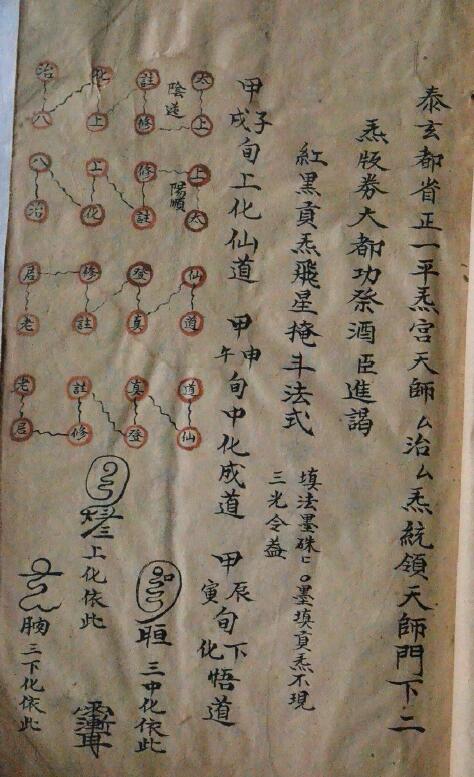 泰玄都省正一平炁宮天師厶治厶炁統領天師門下二
炁版券大都功祭酒臣進謁
紅黑貢炁飛星掩斗法式
填法墨硃匕〇墨填貢炁不現
三光令蓋
甲子戌旬上化仙道 甲申午旬中化成道 甲辰寅旬下化悟道
太 註 化 治
陰逆
上 修 上 八
上 修 上 八
陽順
太 註 化 治
仙 登 修 居
道 真 註 老
道 真 註 老
仙 登 修 居
上化依此
三中化依此
三下化依此